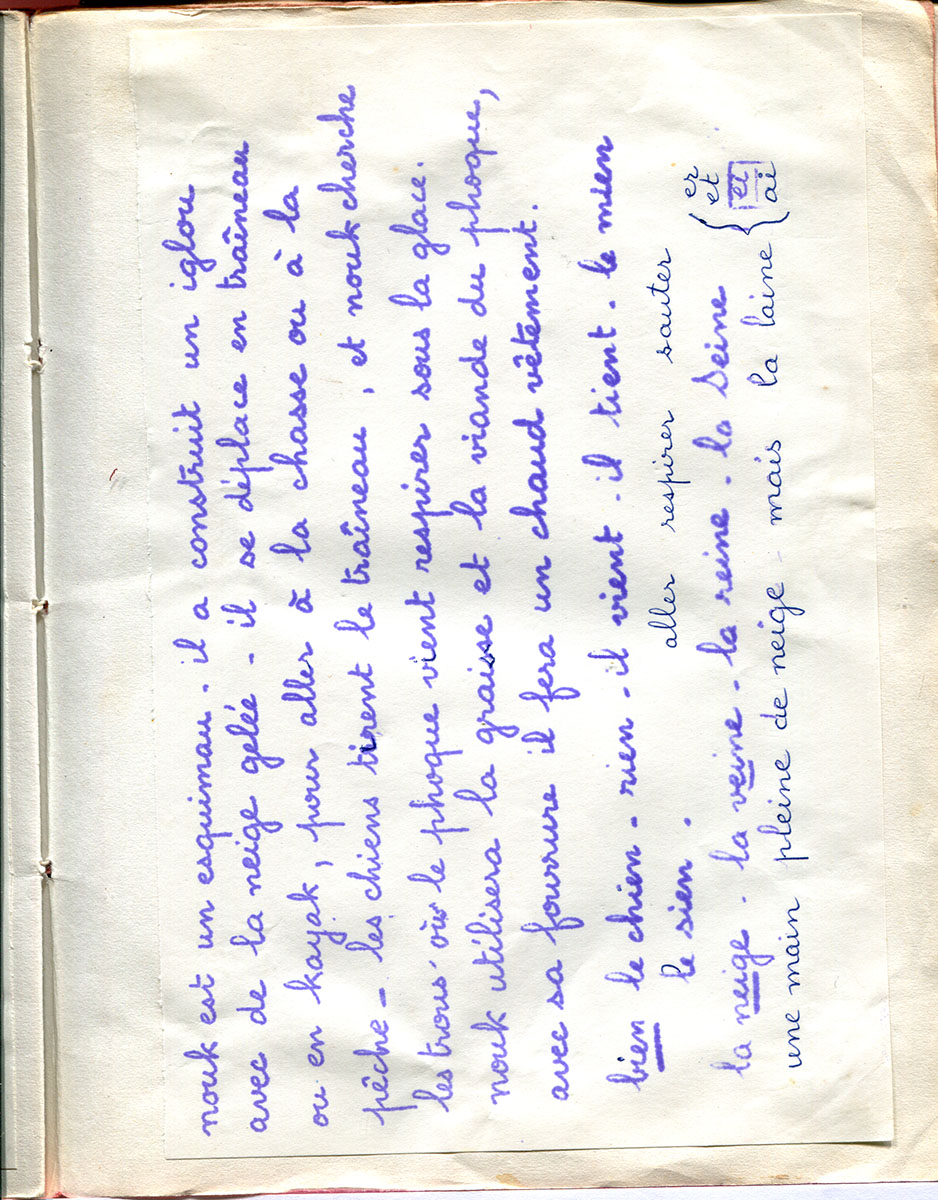 nouk est un esquimau. il a construit un iglou
avec de la neige gelée - il se déplace en traîneau
ou en kayak, pour aller à la chasse ou à la
pêche - les chiens tirent le traîneau, et nouk cherche
les trous où le phoque vient respirer sous la glace.
nouk utilisera la graisse et la viande du phoque,
avec sa fourrure il fera un chaud vêtement.
bien le chien - rien - il vient - il tient - le mien
le sien.
aller respirer sauter
er
et
ei
ai
la neige. la veine - la reine. la Seine
une main pleine de neige - mais la laine {